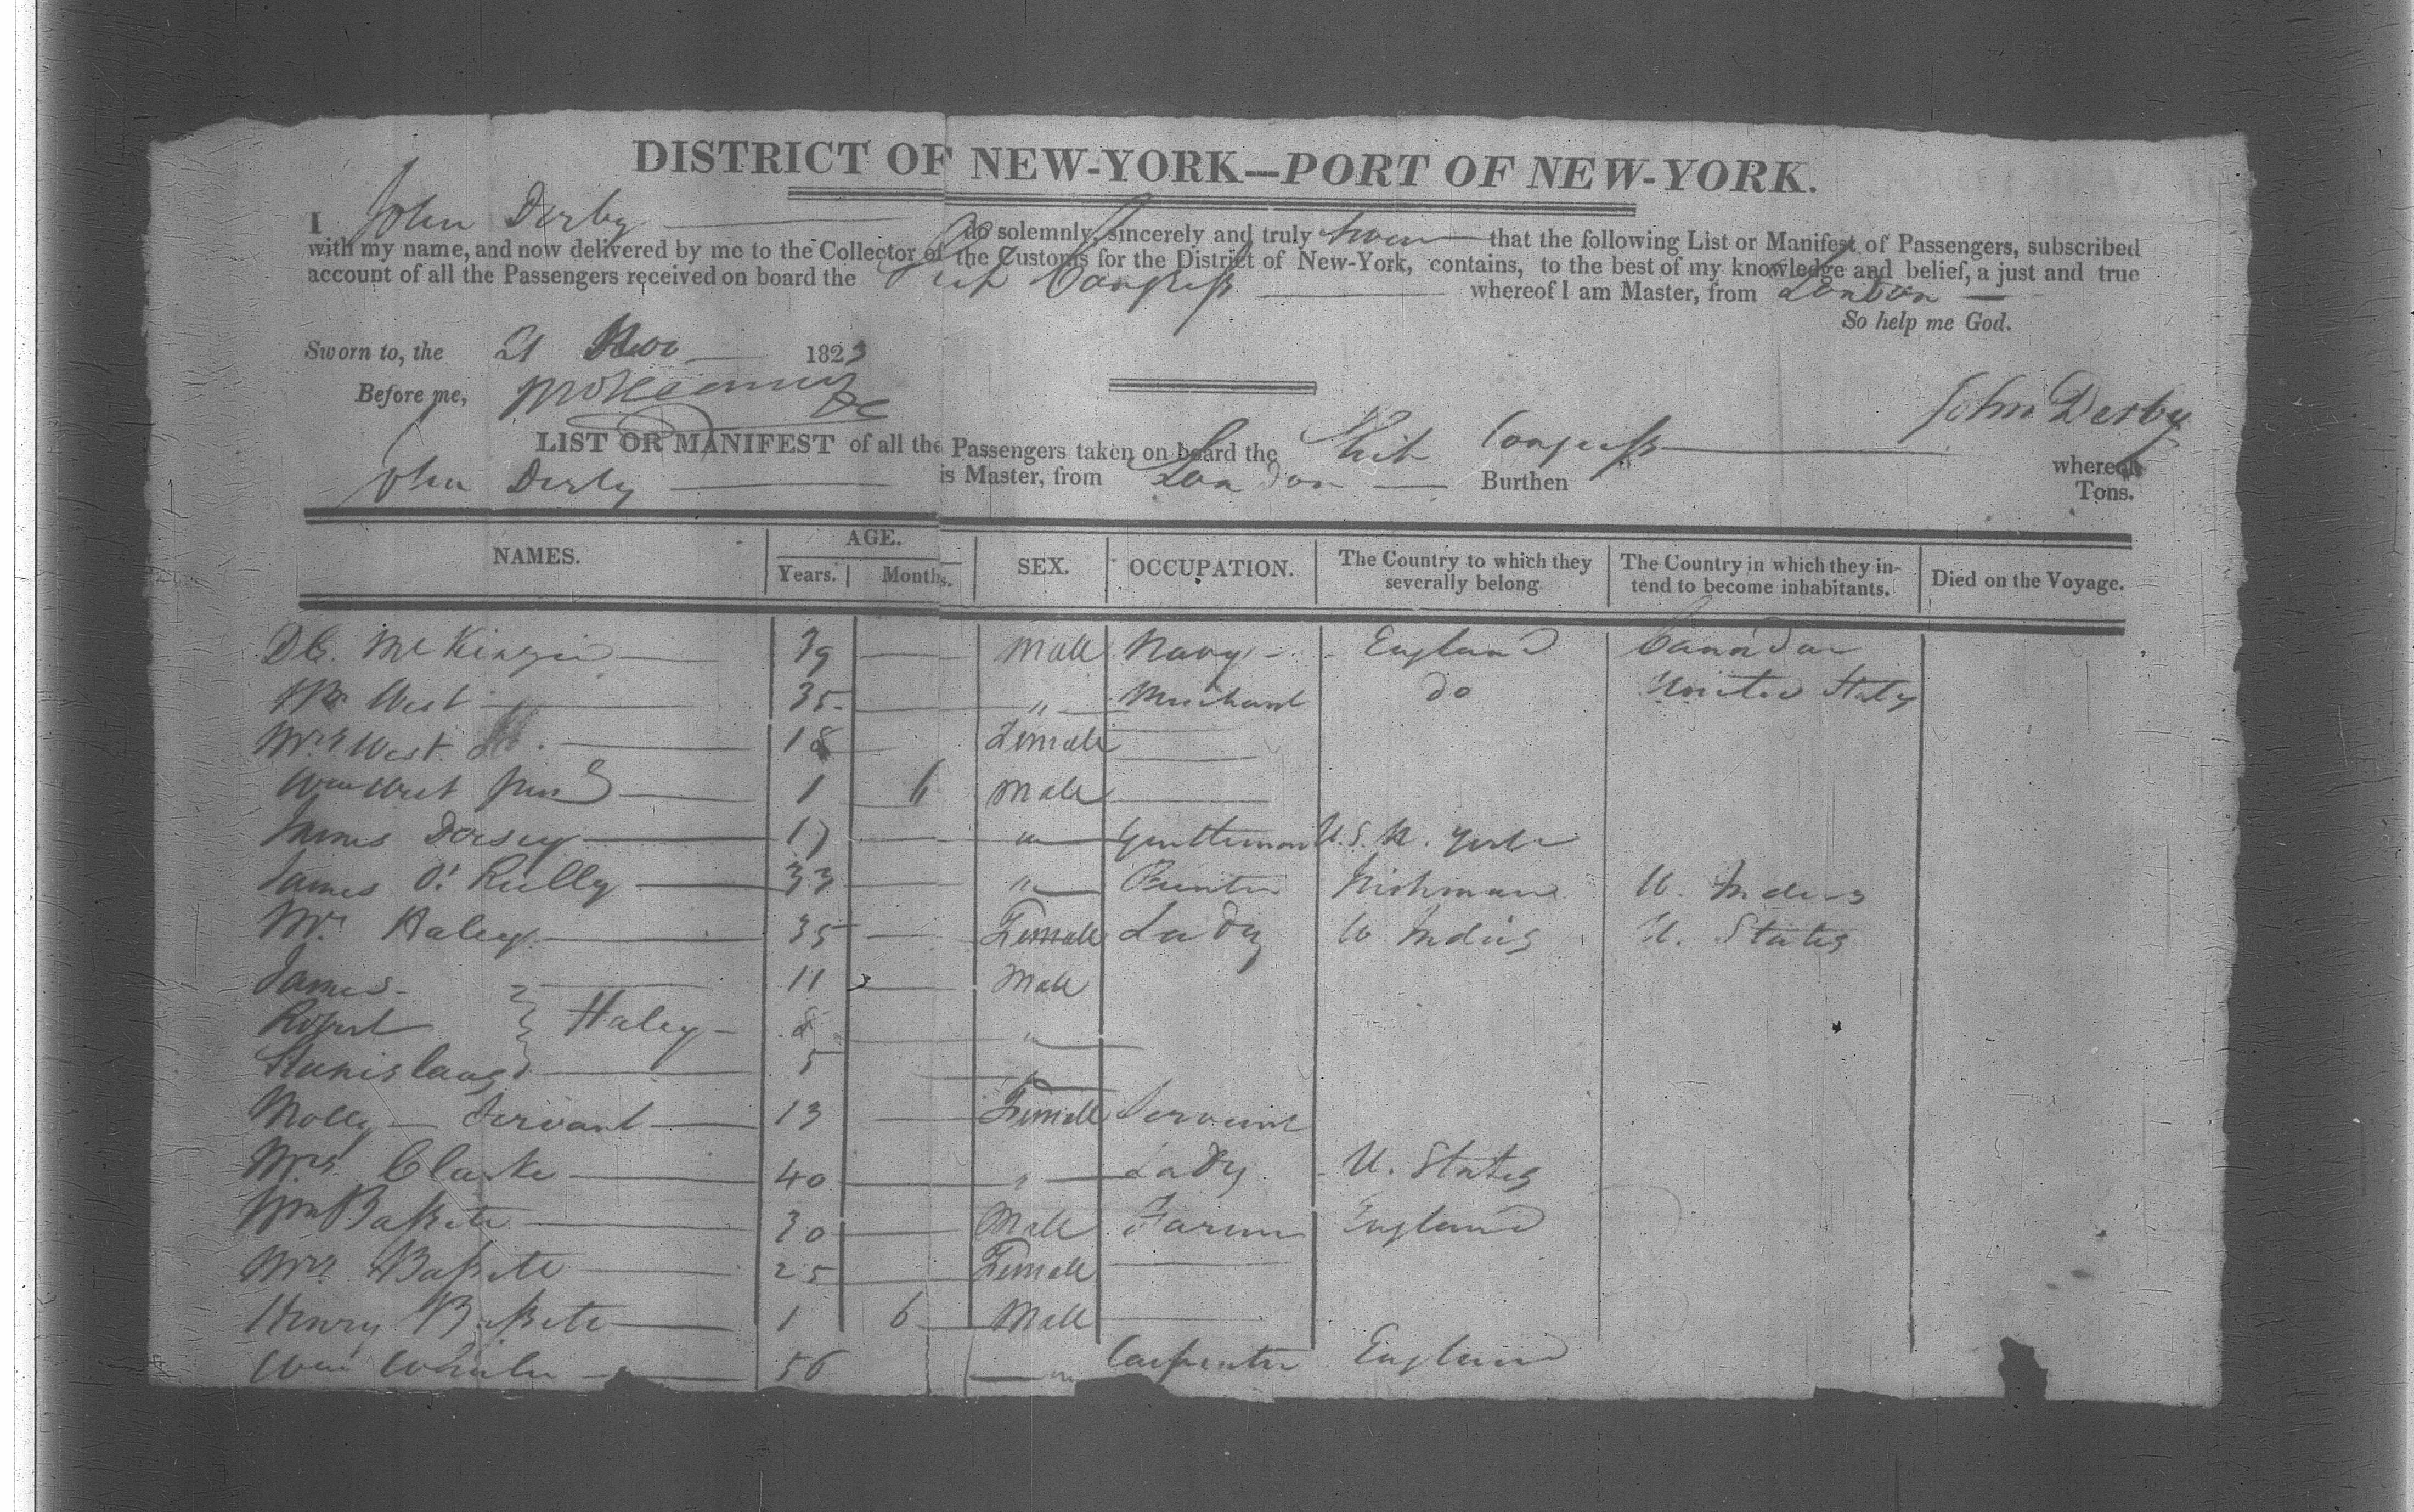 DISTRICT OF NEW-YORK—PORT OF NEW-YORK.
I John Derby do solemnly, sincerely and truly swear that the following List or Manifest of Passengers, subscribed
with my name, and now delivered by me to the Collector of the Customs for the District of New-York, contains, to the best of my knowledge and belief, a just and true
account of all the Passengers received on board the Ship Congress whereof I am Master, from London
So help me God.
Sworn to, the 21 Nov 1823
Before me,
John Derby
LIST OR MANIFEST of all the Passengers taken on board the Ship Congress whereof
John Derby is Master, from London Burthen Tons.
NAMES. AGE. Years. Months. SEX. OCCUPATION. The Country to which they severally belong. The Country in which they intend to become inhabitants. Died on the Voyage.
McKinzie 39 Male Navy England Canada
West 35 " Merchant do United States
Mrs West 18 Female
Wm West Jun 1 6 Male
James Dorsey 17 " Gentleman U.S. N. York
James O'Rielly 33 " Irishman W. Indies
Haley 35 Female Lady W Indies U. States
James 11 Male
Robert Haley 8 "
Stanislaus 5 "
Molly Servant 13 Female Servant
Mrs Clarke 40 " Lady U. States
Wm 30 Male Farmer England
Mrs 25 Female
Henry 1 6 Male
Wm 56 " Carpenter England